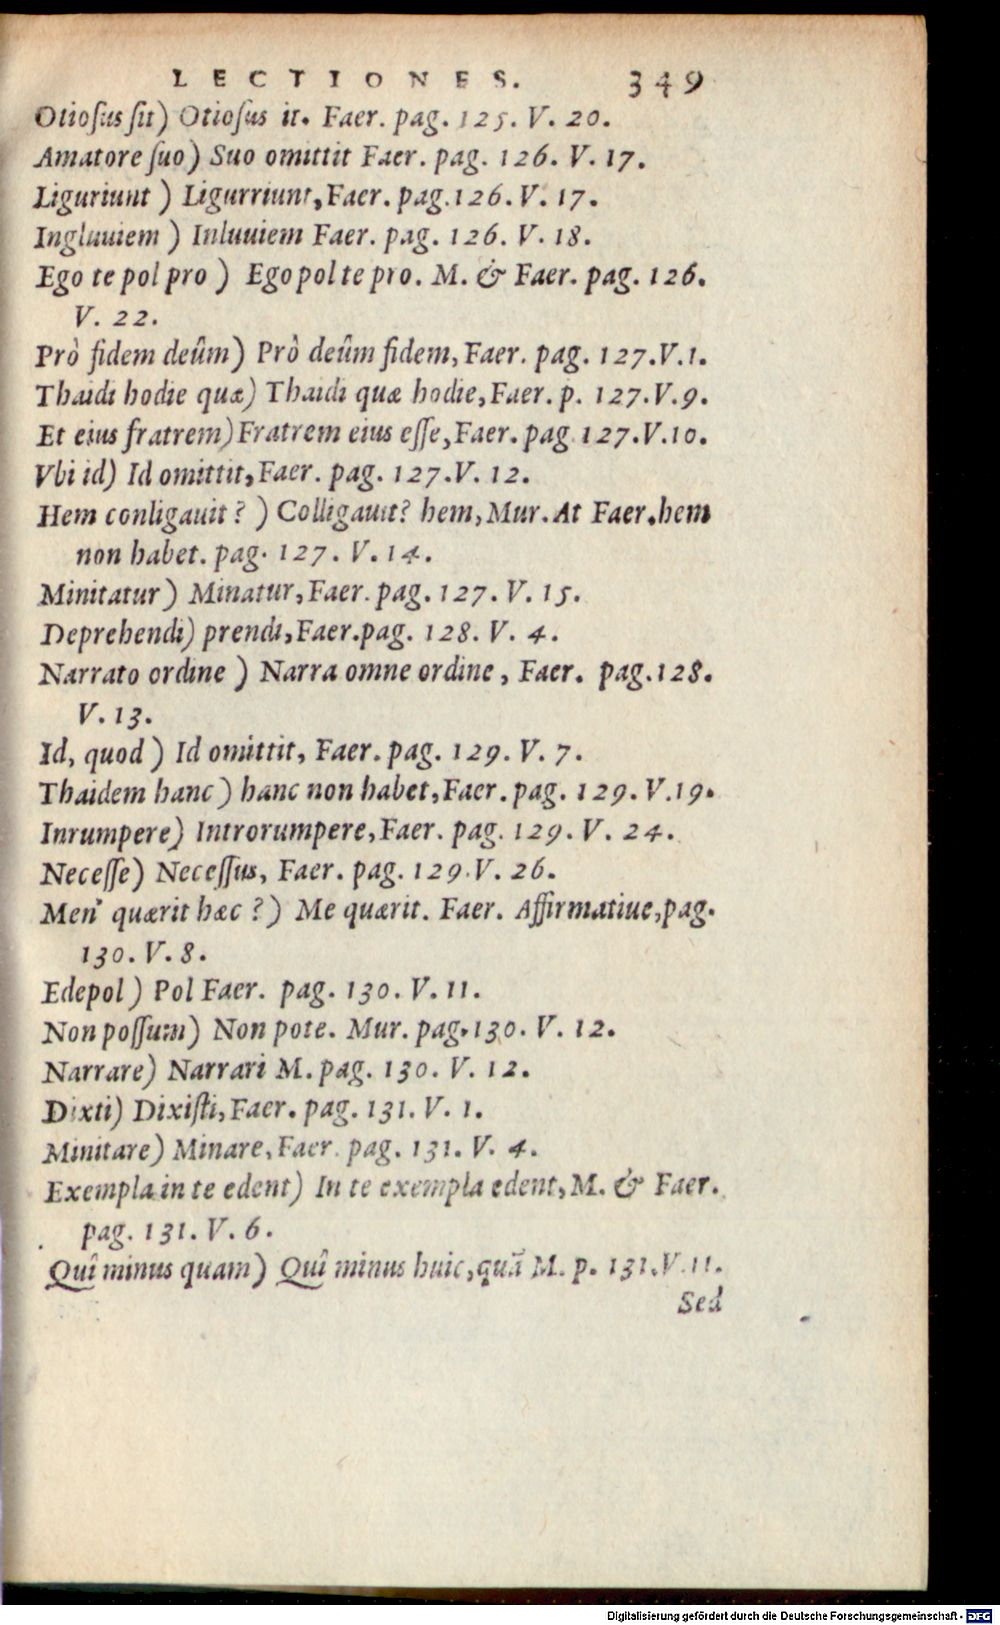 LECTIONES. 349
Otiosus sit) Otiosus it. Faer. pag. 125. V. 20.
Amatore suo) Suo omittit Faer. pag. 126. V. 17.
Liguriunt ) Ligurriunt, Faer. pag. 126. V. 17.
Ingluuiem ) Inluuiem Faer. pag. 126. V. 18.
Ego te pol pro ) Ego pol te pro. M. & Faer. pag. 126.
V. 22.
Prò fidem deûm) Prò deûm fidem, Faer. pag. 127. V. 1.
Thaidi hodie quæ) Thaidi quæ hodie, Faer. p. 127. V. 9.
Et eius fratrem) Fratrem eius esse, Faer. pag. 127. V. 10.
Vbi id) Id omittit, Faer. pag. 127. V. 12.
Hem conligauit? ) Colligauit? hem, Mur. At Faer. hem
non habet. pag. 127. V. 14.
Minitatur) Minatur, Faer. pag. 127. V. 15.
Deprehendi) prendi, Faer. pag. 128. V. 4.
Narrato ordine ) Narra omne ordine, Faer. pag. 128.
V. 13.
Id, quod ) Id omittit, Faer. pag. 129. V. 7.
Thaidem hanc ) hanc non habet, Faer. pag. 129. V. 19.
Inrumpere) Introrumpere, Faer. pag. 129. V. 24.
Necesse) Necessus, Faer. pag. 129. V. 26.
Men' quærit hæc ?) Me quærit. Faer. Affirmatiue, pag.
130. V. 8.
Edepol ) Pol Faer. pag. 130. V. 11.
Non possum) Non pote. Mur. pag. 130. V. 12.
Narrare) Narrari M. pag. 130. V. 12.
Dixti) Dixisti, Faer. pag. 131. V. 1.
Minitare) Minare, Faer. pag. 131. V. 4.
Exempla in te edent) In te exempla edent, M. & Faer.
pag. 131. V. 6.
Quî minus quam) Quî minus huic, quã M. p. 131. V. 11.
Sed
Digitalisierung gefördert durch die Deutsche Forschungsgemeinschaft - DFG